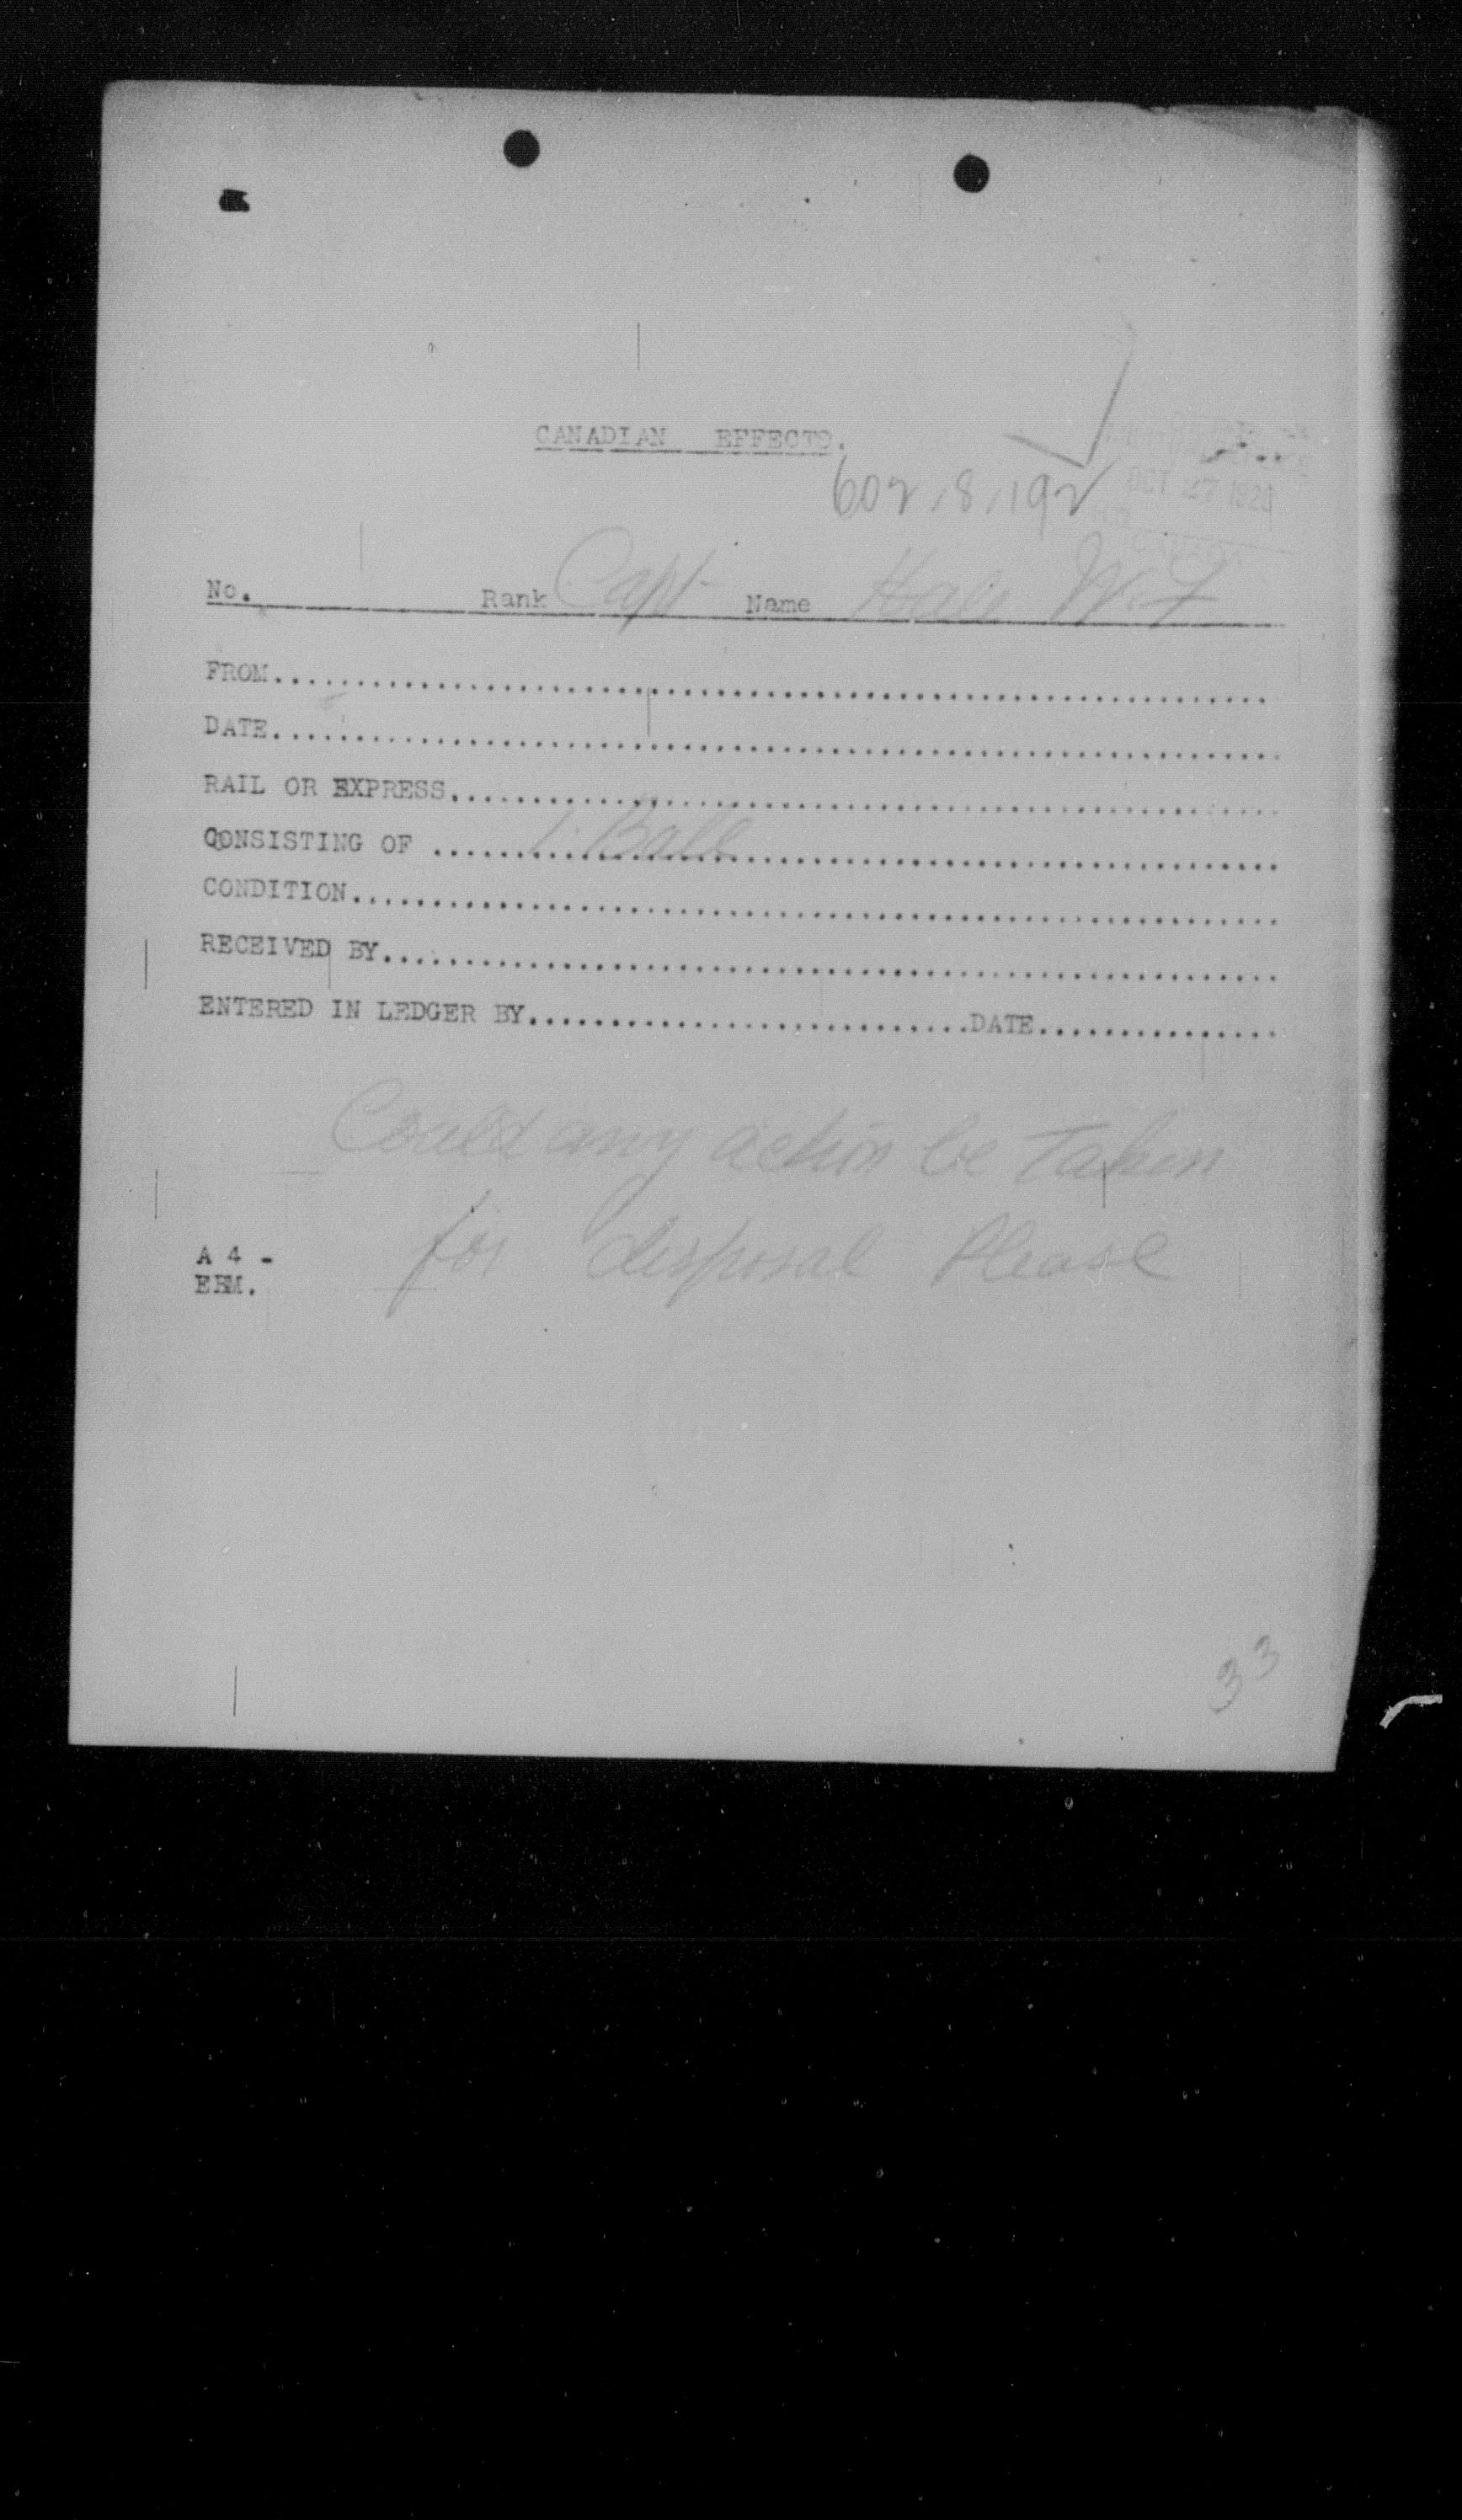 CANADIAN EFFECTS.
602,8,192
OCT 27 192
No. Rank Capt Name W.F
FROM
DATE
RAIL OR EXPRESS
CONSISTING OF 1. Bale
CONDITION
RECEIVED BY
ENTERED IN LEDGER BY DATE
Could any action be taken
for disposal Please
A 4 -
EHM.
33